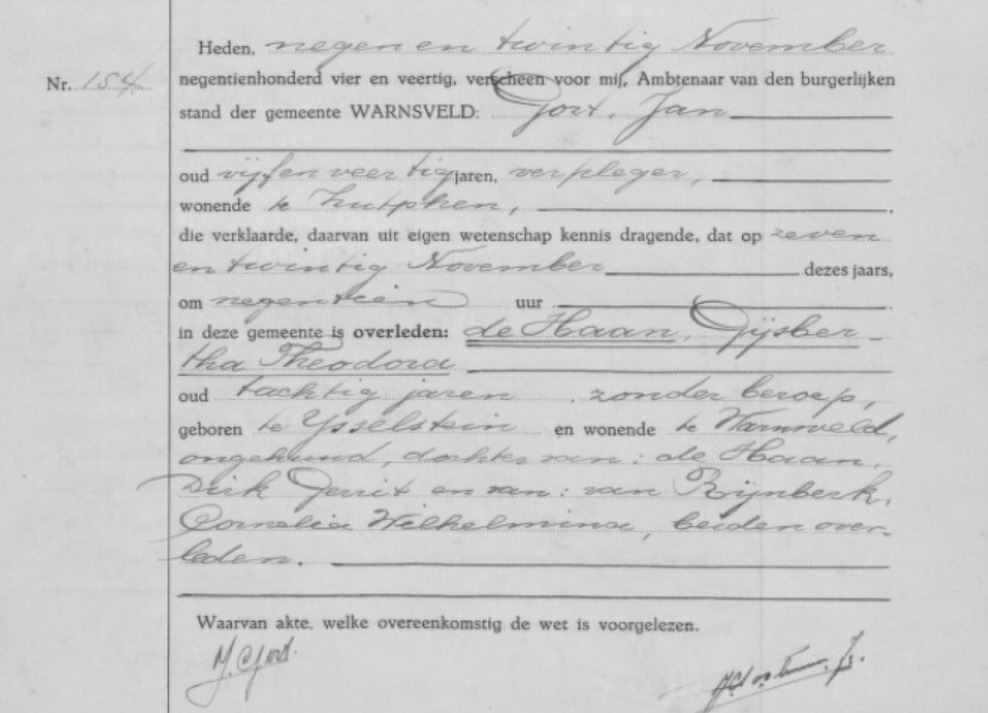 Heden, negen en twintig November
Nr. 154
negentienhonderd vier en veertig, verscheen voor mij, Ambtenaar van den burgerlijken
stand der gemeente WARNSVELD: Gort, Jan
oud vijf en veertig jaren, verpleger,
wonende te Zutphen,
die verklaarde, daarvan uit eigen wetenschap kennis dragende, dat op zeven
en twintig November dezes jaars,
om negentien uur
in deze gemeente is overleden: de Haan, Gijsber-
tha Theodora
oud tachtig jaren, zonder beroep,
geboren te Ysselstein en wonende te Warnsveld,
ongehuwd, dochter van: de Haan,
Dirk Gerrit en van: van Rijnberk,
Cornelia Wilhelmina, beiden over-
leden.
Waarvan akte, welke overeenkomstig de wet is voorgelezen.
J. Gort.